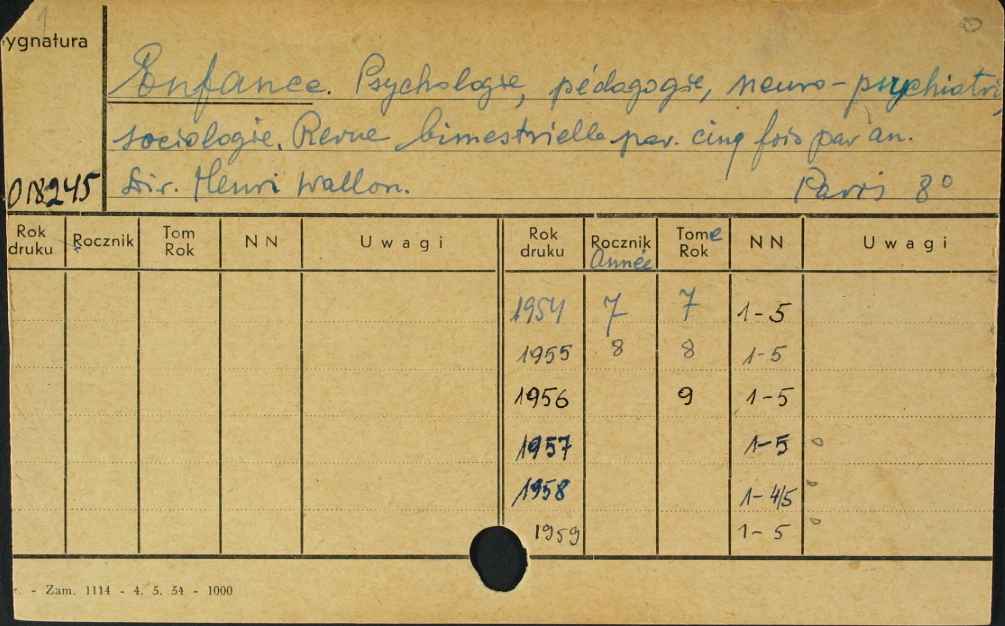 1
ygnatura
Enfance. Psychologie, pédagogie, neuro-psychiatri
sociologie. Revue bimestrielle par. cinq fois par an.
018245 Dir. Henri Wallon. Paris 8°
Rok druku Rocznik Tom Rok NN Uwagi Rok druku Rocznik Année Tome Rok NN Uwagi
1954 7 7 1-5
1955 8 8 1-5
1956 9 1-5
1957 1-5
1958 1-4/5
1959 1-5
- Zam. 1114 - 4. 5. 54 - 1000